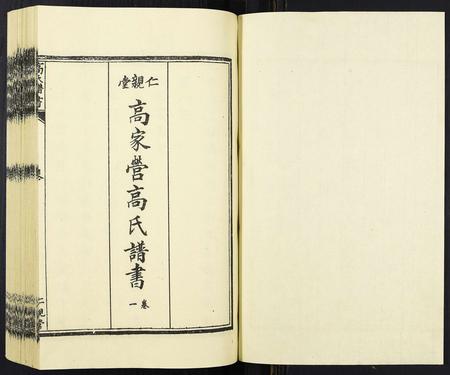 仁親堂
高家營高氏譜書
卷一